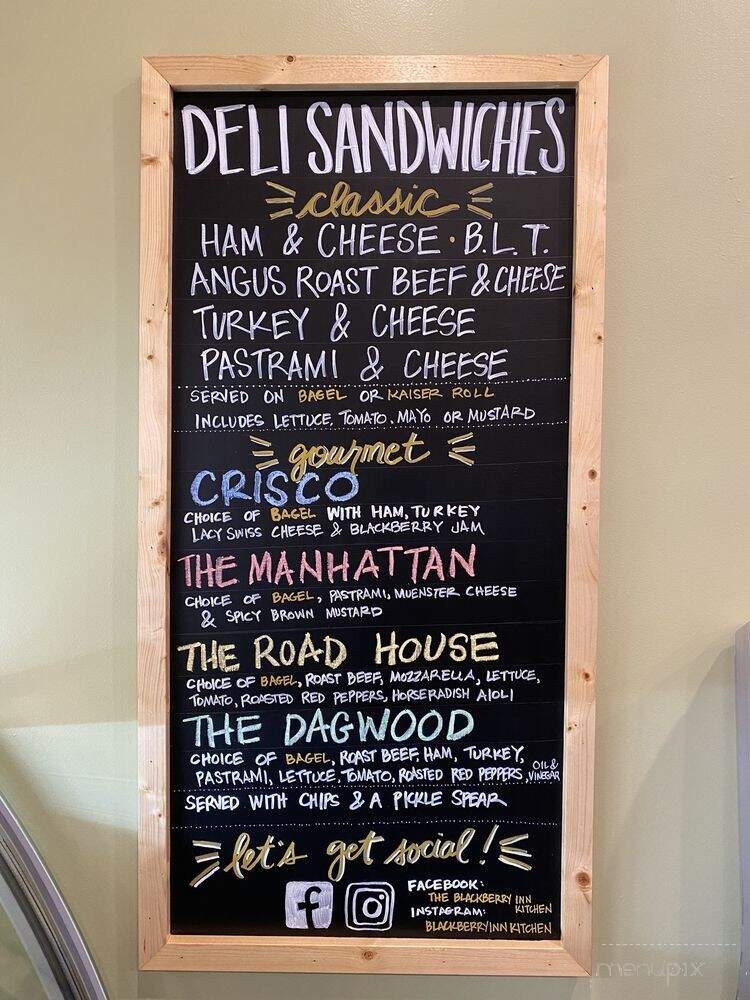 DELI SANDWICHES
classic
HAM & CHEESE · B.L.T.
ANGUS ROAST BEEF & CHEESE
TURKEY & CHEESE
PASTRAMI & CHEESE
SERVED ON BAGEL OR KAISER ROLL
INCLUDES LETTUCE, TOMATO, MAYO OR MUSTARD
gourmet
CRISCO
CHOICE OF BAGEL WITH HAM, TURKEY
LACY SWISS CHEESE & BLACKBERRY JAM
THE MANHATTAN
CHOICE OF BAGEL, PASTRAMI, MUENSTER CHEESE
& SPICY BROWN MUSTARD
THE ROAD HOUSE
CHOICE OF BAGEL, ROAST BEEF, MOZZARELLA, LETTUCE,
TOMATO, ROASTED RED PEPPERS, HORSERADISH AIOLI
THE DAGWOOD
CHOICE OF BAGEL, ROAST BEEF, HAM, TURKEY,
PASTRAMI, LETTUCE, TOMATO, ROASTED RED PEPPERS, OIL & VINEGAR
SERVED WITH CHIPS & A PICKLE SPEAR
let's get social!
FACEBOOK:
THE BLACKBERRY INN
KITCHEN
INSTAGRAM:
BLACKBERRYINNKITCHEN
menupix